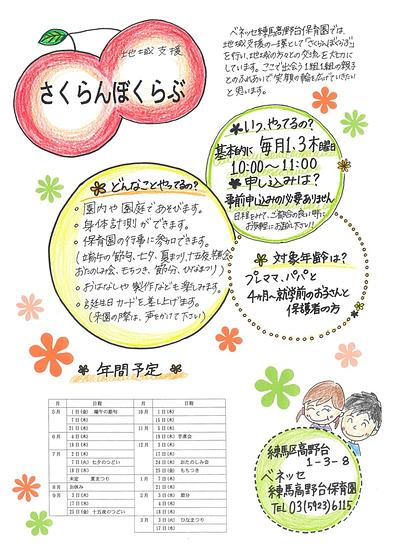 地域支援
さくらんぼくらぶ
ベネッセ練馬高野台保育園では、
地域支援の一環として「さくらんぼくらぶ」
を行い、地域の方々との交流を大切に
しています。ここで出会う1組1組の親子
とのふれあいで笑顔の輪を広げていきたい
と思います。
いつ、やってるの?
基本的に 毎月1.3木曜日
10:00〜11:00
申し込みは?
事前申し込みの必要ありません
お気軽にお越し下さい!
どんなことやってるの?
・園内や園庭であそびます。
・身体計測ができます。
・保育園の行事に参加できます。
(端午の節句、七夕、夏まつり、十五夜、
おたのしみ会、もちつき、節分、ひなまつり)
・おはなしや製作なども楽しみます。
・お誕生日カードも差し上げます。
(来園の際は、声をかけて下さい)
対象年齢は?
プレママ、パパと
4ヶ月〜就学前のお子さんと
保護者の方
年間予定
月 日程 月 日程
5月 1日(金) 端午の節句 10月 1日(木)
7日(木) 15日(木)
21日(木)
6月 4日(木)
18日(木) 12月 3日(木)
7月 2日(木)
7日(火) 七夕のつどい 24日(木) おたのしみ会
未定 夏まつり
8月 お休み
9月 3日(木) 節分
25日(金) 十五夜のつどい
3月 3日(木) ひなまつり
17日(木)
練馬区高野台
1-3-8
ベネッセ
練馬高野台保育園
TEL 03(5923)6115